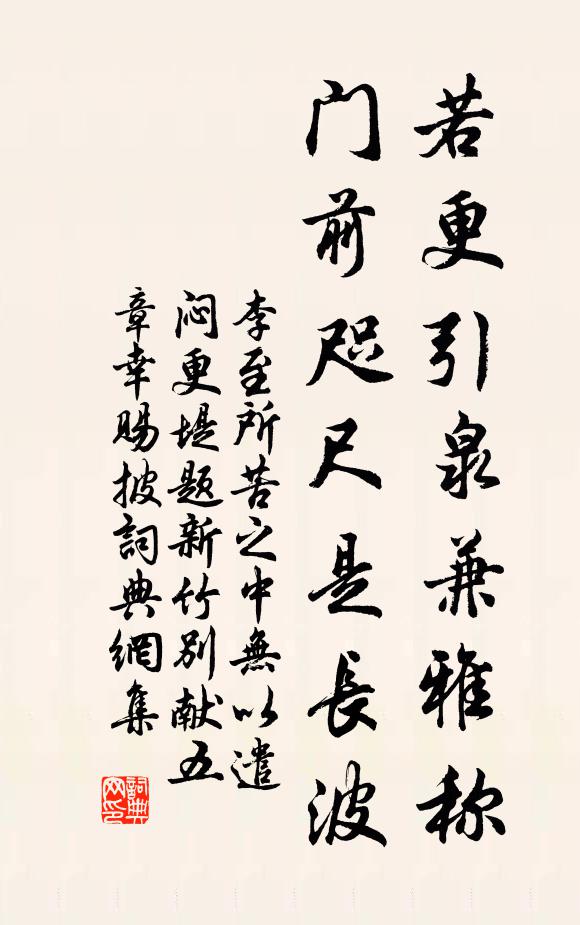 若更引泉兼雅称
门前咫尺是長波
李至所苦之中無以遣
闷更堤题新竹别献五
章幸赐披詞典網集
詞典网印